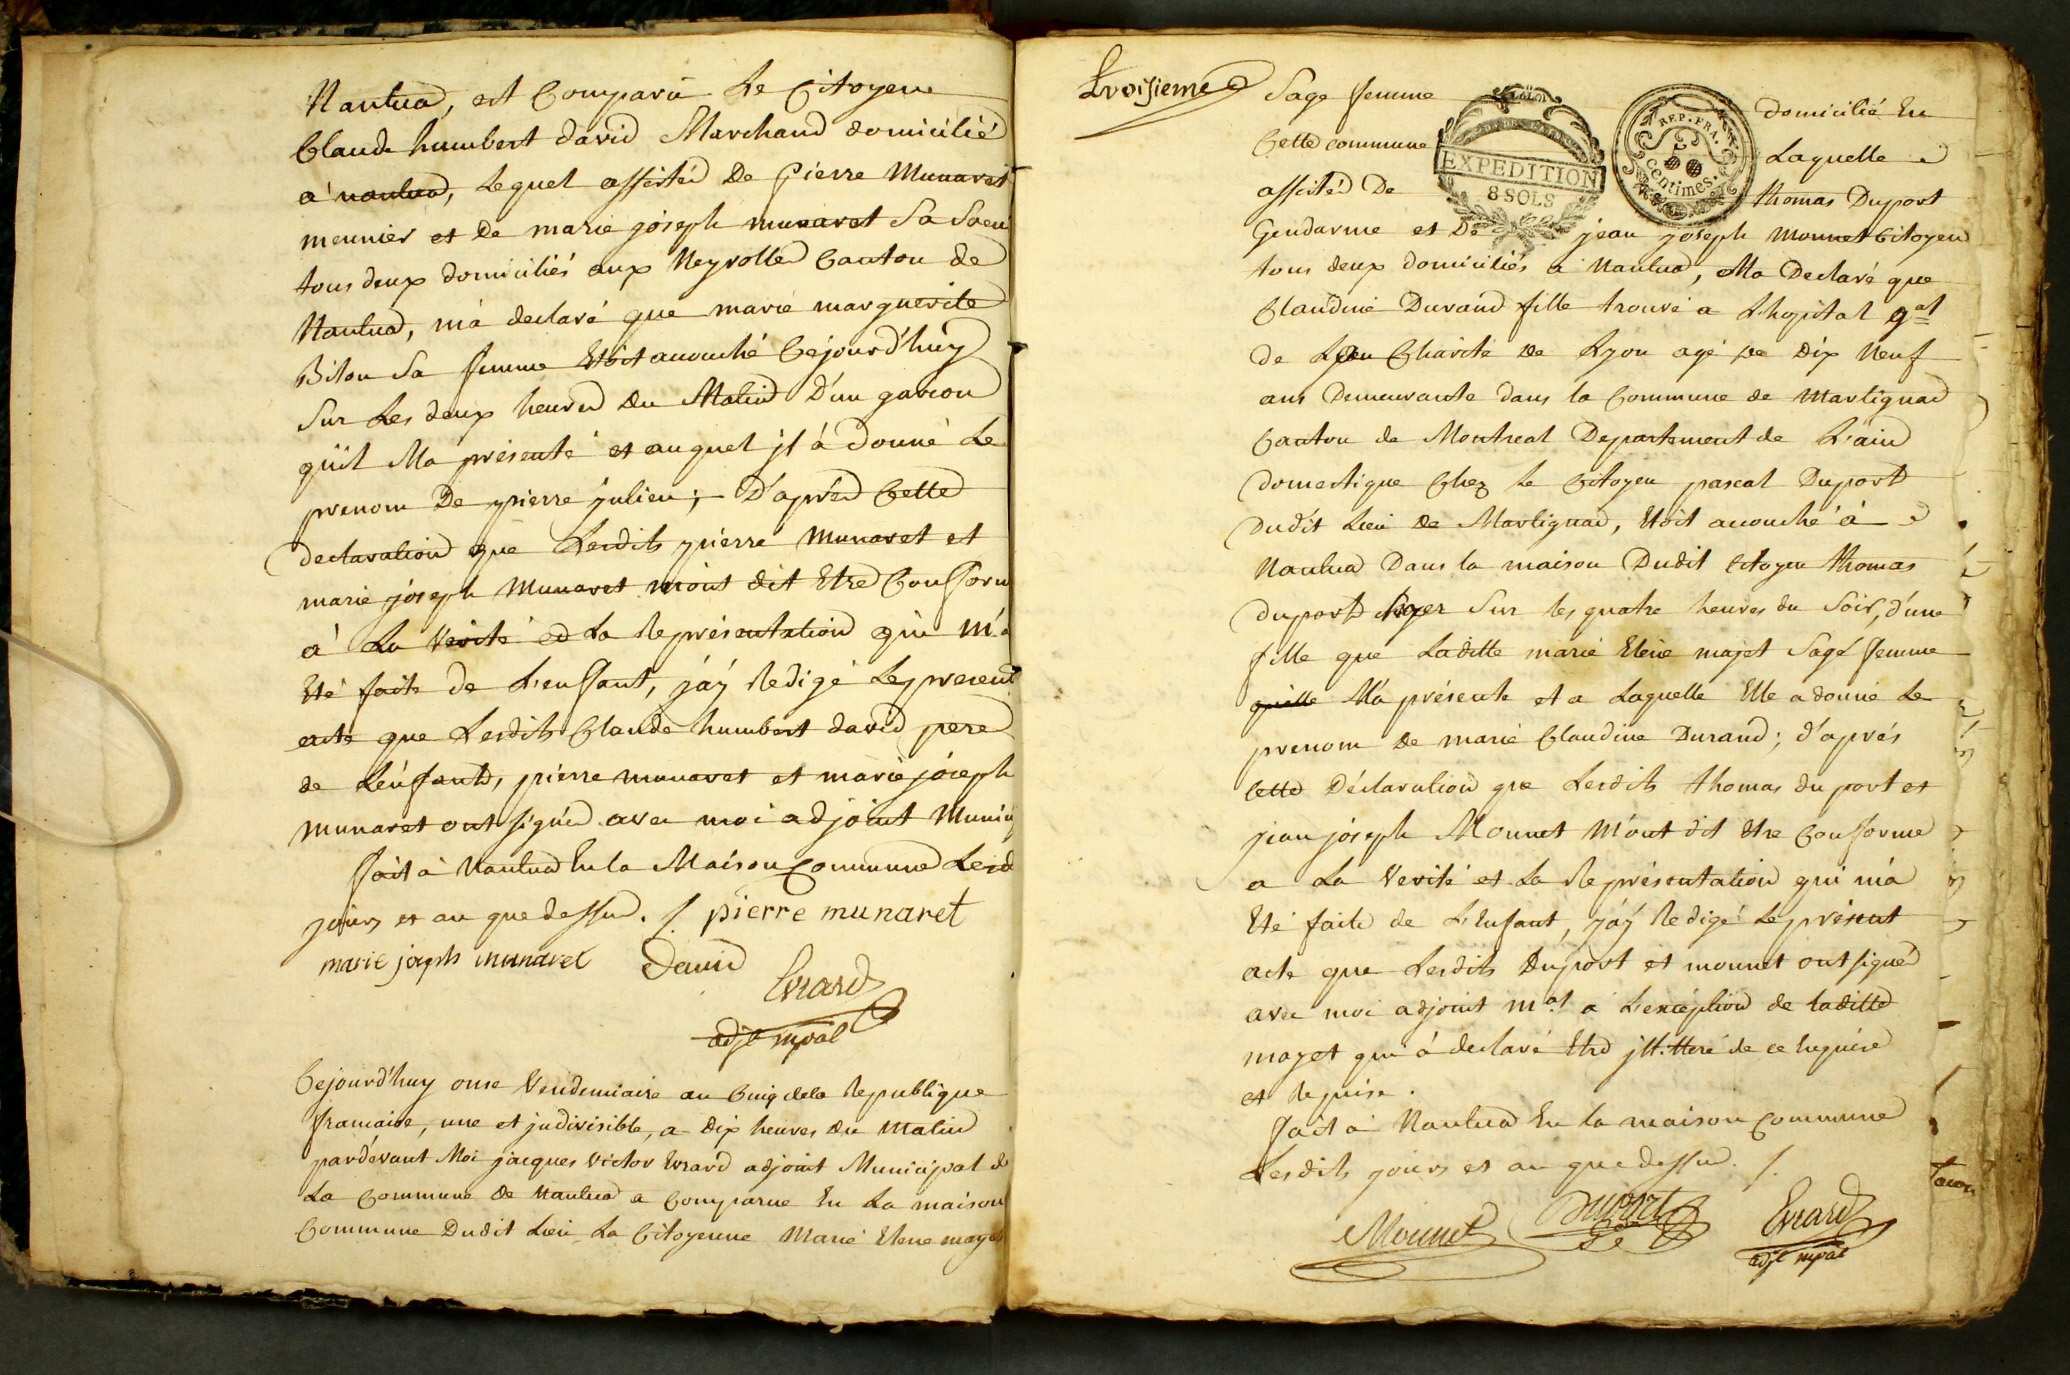 Nantua, est Comparu Le Citoyen
Claude humbert david Marchand domicilié
a nantua, Lequel assisté De Pierre Munaret
meunier et De marie joseph munaret Sa Soeur
tous deux domiciliés aux Neyrolles Canton de
Nantua, m'a declaré que marie marguerite
Bilon Sa femme Etoit acouché Cejourd'huy
Sur Les deux heures Du Matin D'un garcon
qu'il M'a présenté et auquel jl à donné Le
prenom De pierre julien; D'après Cette
declaration que Lesdits pierre Munaret et
marie joseph Munaret m'ont dit Etre Conform
à La Verité et La Représentation qui m'a
Eté faite de L'enfant, j'ay Redigé Le present
acte que Lesdits Claude humbert david pere
de L'enfant, pierre munaret et marie joseph
munaret ont signés avec moi adjoint Munici
fait à Nantua En la Maison Commune Lesd
jours et an que dessus. /. pierre munaret
marie joseph munaret David
Evrard
adjt mpal
Cejourd'huy onse Vendemiaire an Cinq de la Republique
francaise, une et jndivisible, a Dix heures Du Matin
pardevant Moi jacques victor Evrard adjoint Municipal de
La Commune de Nantua a Comparue En La maison
Commune Dudit Lieu La Citoyenne Marie Elene mayet
troisieme
Sage femme domicilié En
Cette commune Laquelle
assisté De thomas Duport
EXPEDITION
8 SOLS
REP. FRA.
5
Centimes.
Gendarme et De jean joseph Monnet Citoyen
tous deux domiciliés a Nantua, M'a Declaré que
Claudine Durand fille trouvé a L'hopital gal
de La Charité de Lyon agé de Dix Neuf
ans Demeurante dans la Commune de Martignat
Canton de Montreal Departement de L'ain
domestique Chez le Citoyen pascal Duport
Dudit Lieu de Martignat, Etoit acouché à
Nantua Dans la maison Dudit Citoyen thomas
duport hyer Sur les quatre heures du Soir, d'une
fille que Laditte marie Elene majet Sage femme
qu'elle M'a présenté et a Laquelle Elle a donné Le
prenom de marie Claudine Durand; d'après
Cette Déclaration que Lesdits thomas duport et
jean joseph Monnet M'ont dit Etre Conforme
a La Verité et La Représentation qui m'a
Eté faite de L'Enfant, j'ay Redigé Le présent
acte que Lesdits Duport et monnet ont signés
avec moi adjoint mal a L'exception de laditte
mayet qui à declaré Etre jlltteré de ce Enquise
et Requise.
fait à Nantua En la maison Commune
Lesdits jours et an que dessus. /.
Monnet Duport Evrard
adjt mpal